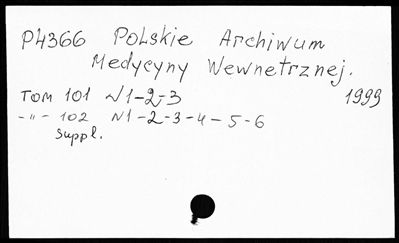 P4366 Polskie Archiwum
Medycyny Wewnetrznej.
Том 101 N1-2-3 1999
-"- 102 N1-2-3-4-5-6
Suppl.